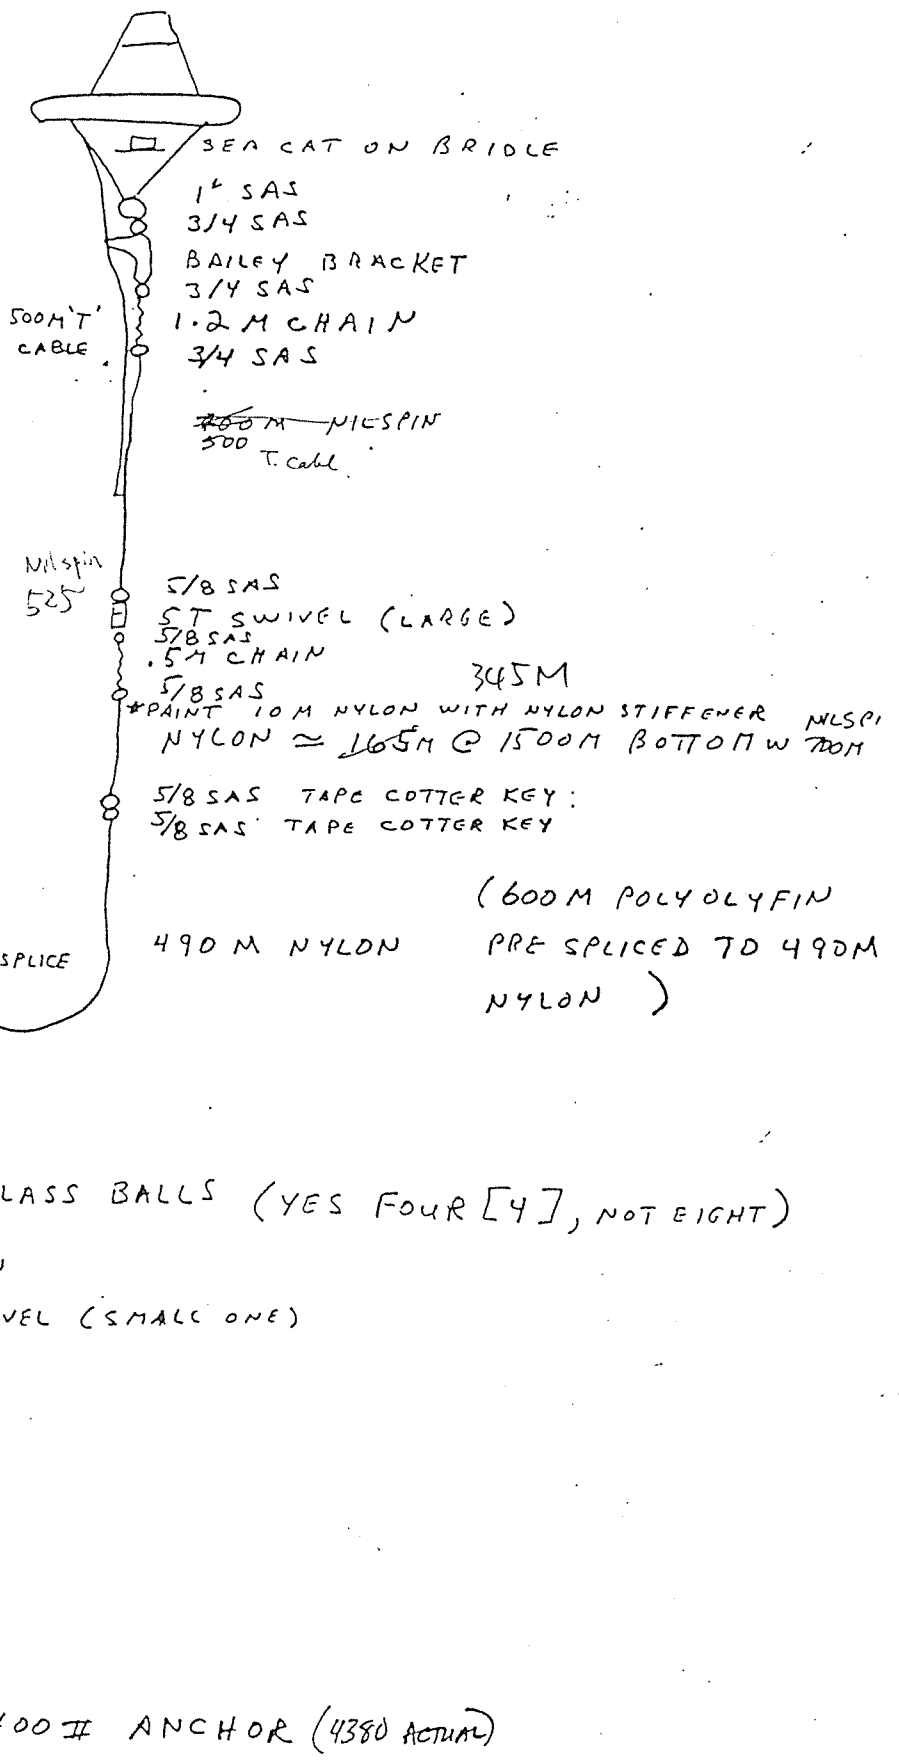 SEA CAT ON BRIDLE
1" SAS
3/4 SAS
BAILEY BRACKET
3/4 SAS
500M 'T'
CABLE
1.2 M CHAIN
3/4 SAS
700 M NILSPIN
500
T. Cabl
Nilspin
525
5/8 SAS
5T SWIVEL (LARGE)
5/8 SAS
.5M CHAIN
345M
5/8 SAS
*PAINT 10 M NYLON WITH NYLON STIFFENER
NILSPI
NYLON ≃ 165M @ 1500M BOTTOM W 700M
5/8 SAS TAPE COTTER KEY :
5/8 SAS TAPE COTTER KEY
(600M POLYOLYFIN
490 M NYLON
PRE SPLICED TO 490M
SPLICE
NYLON )
LASS BALLS (YES FOUR [4], NOT EIGHT)
VEL (SMALL ONE)
00 II ANCHOR (4380 ACTUAL)